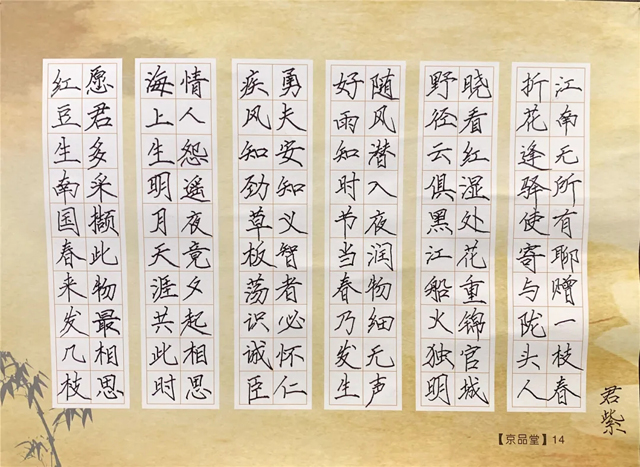 红豆生南国春来发几枝
愿君多采撷此物最相思
海上生明月天涯共此时
情人怨遥夜竟夕起相思
疾风知劲草板荡识诚臣
勇夫安知义智者必怀仁
好雨知时节当春乃发生
随风潜入夜润物细无声
野径云俱黑江船火独明
晓看红湿处花重锦官城
折花逢驿使寄与陇头人
江南无所有聊赠一枝春
君紫
【京品堂】14